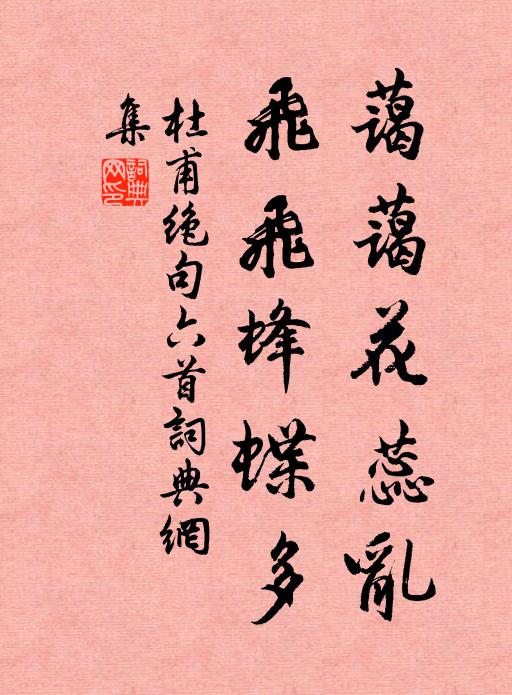 藹藹花蕊亂
飛飛蜂蝶多
杜甫絶句六首詞典網
集
詞典網印